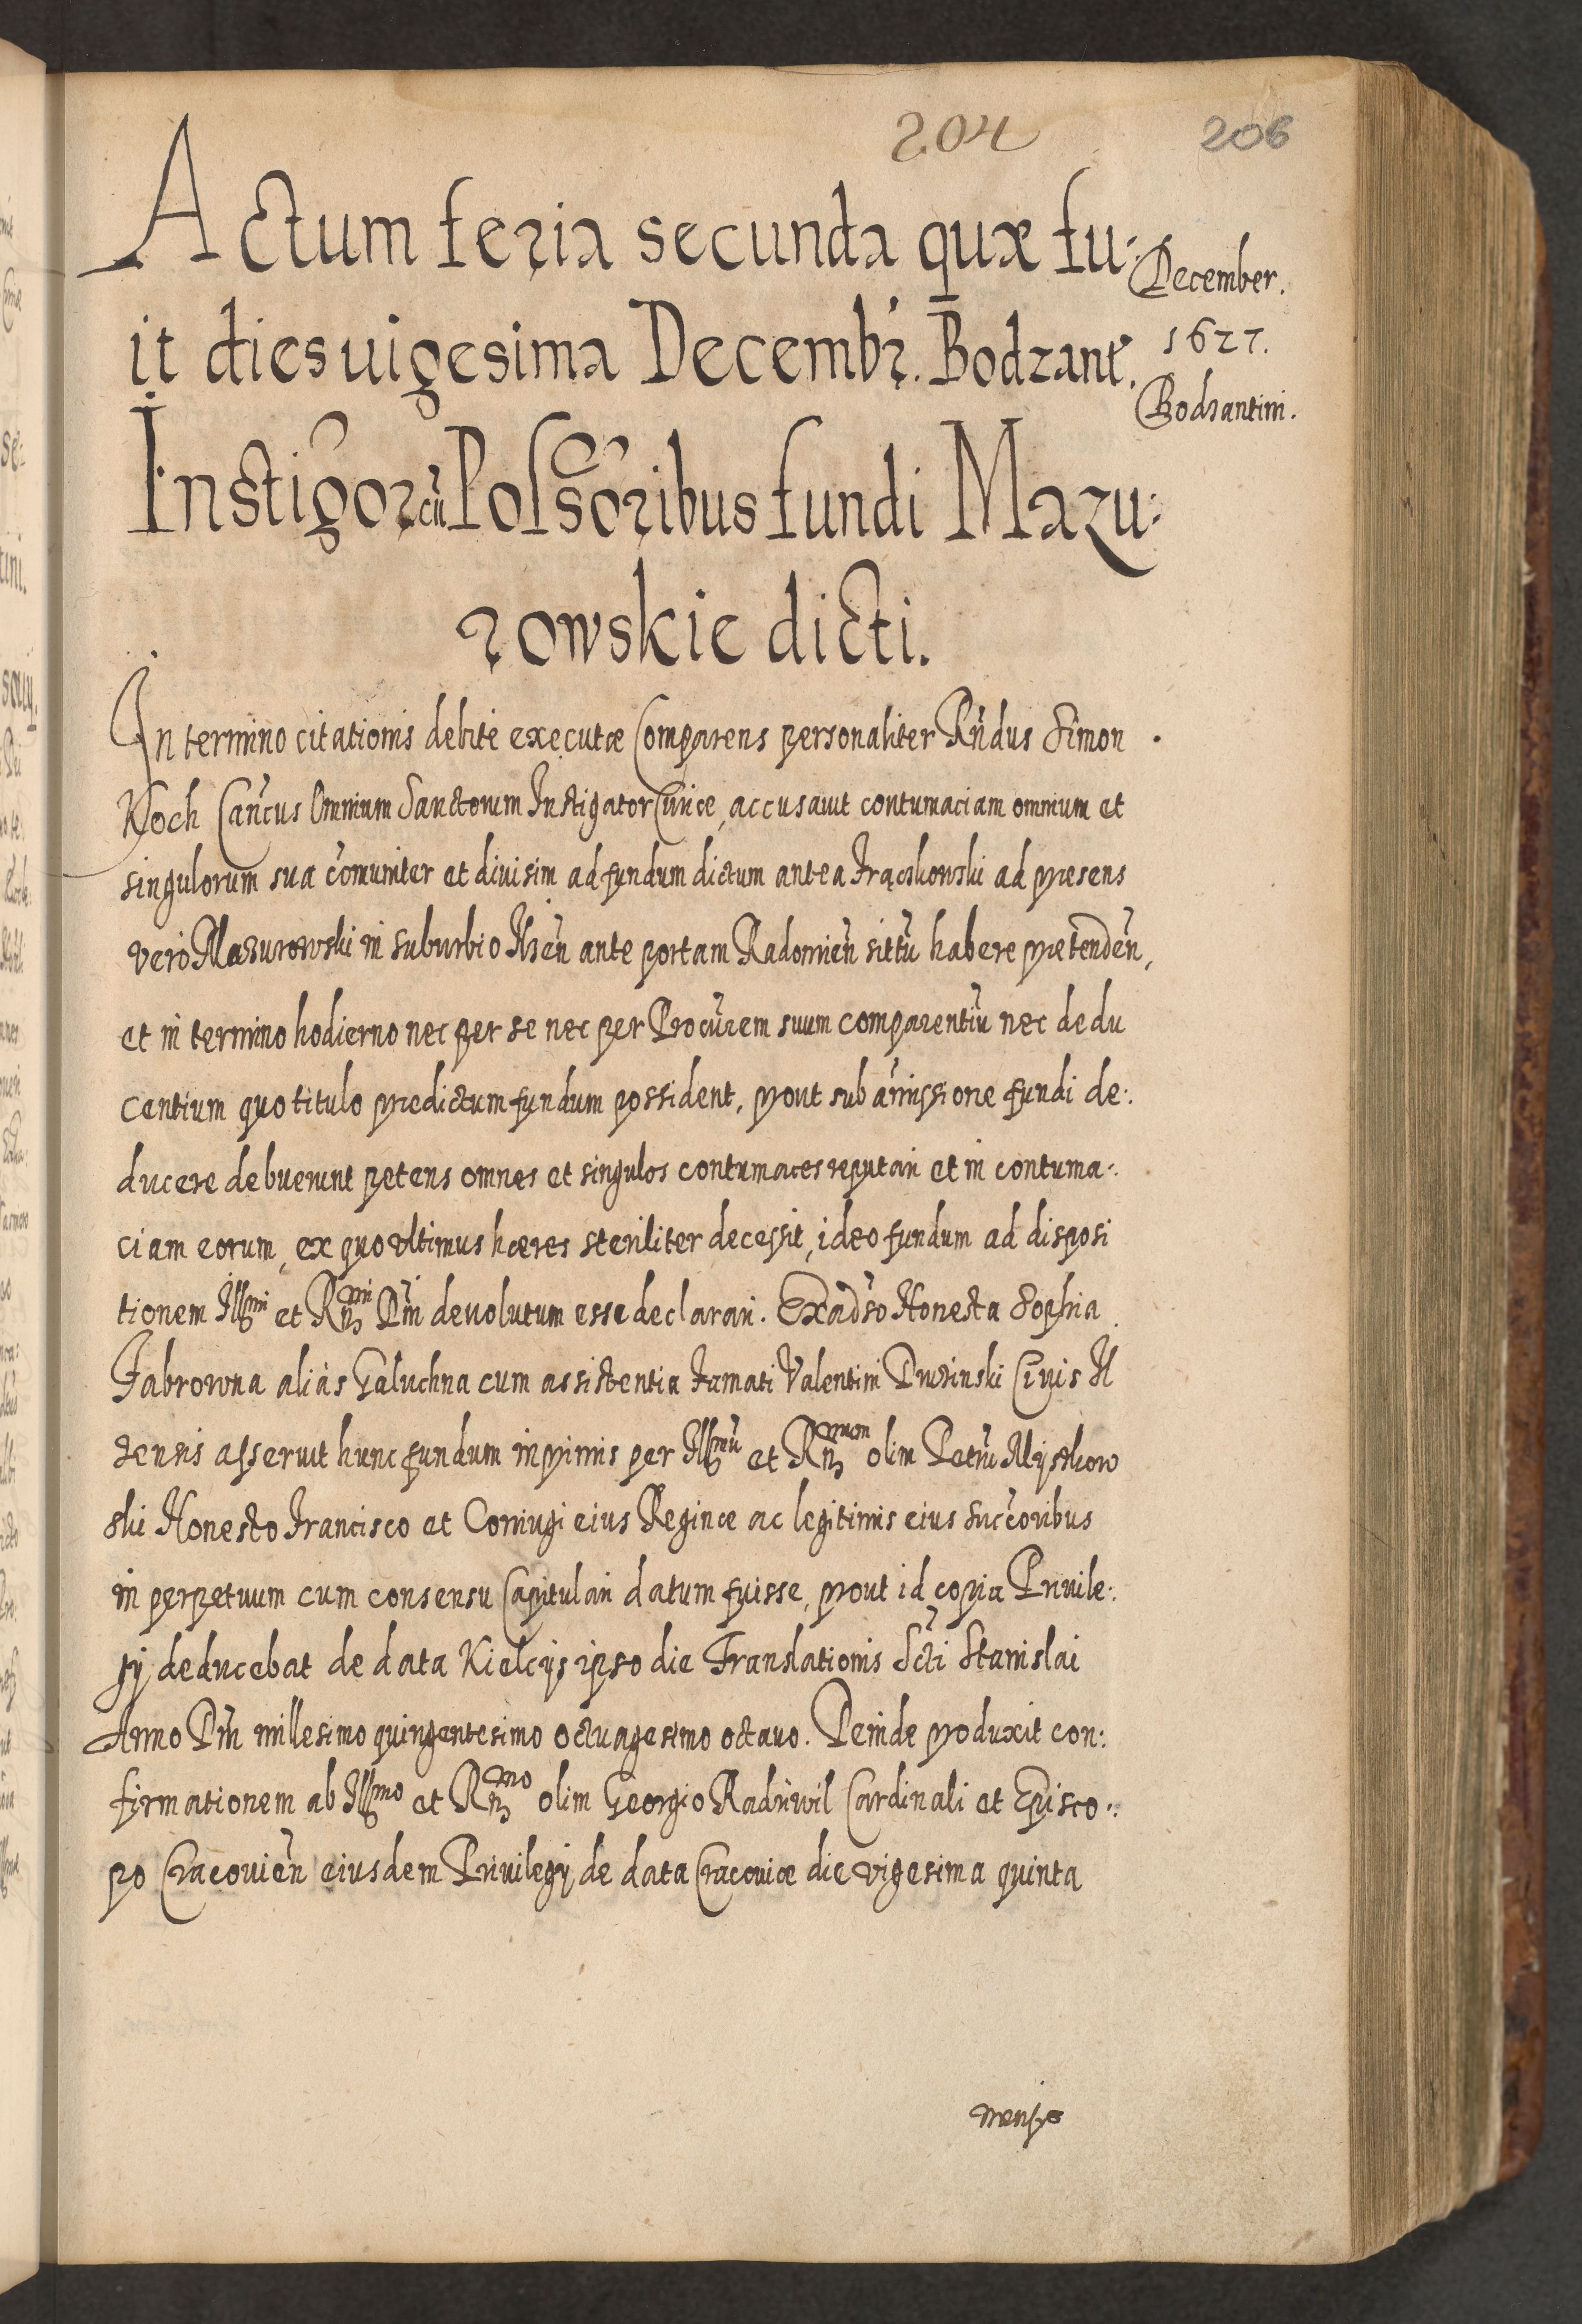 204
206
Actum feria secunda quæ fu:
December.
it dies uigesima Decembr. Bodzant.
1627.
Bodzantini.
Instigor cū Possōribus fundi Mazu:
rowskie dicti.
In termino citationis debite executæ Comparens personaliter Rn̄dus Simon
Koch Can̄cus Omnium Sanctorum Instigator Curiæ, accusauit contumaciam omnium et
singulorum sua cōmuniter et diuisim ad fundum dictum antea Frąckowski ad præsens
vero Mazurowski in suburbio Ilzēn ante portam Radomiēn sittū habere prætendēn,
et in termino hodierno nec per se nec per Procūrem suum comparentiū nec dedu
centium quo titulo prædictum fundum possident, prout sub āmissione fundi de:
ducere debuerunt petens omnes et singulos contumaces reputari et in contuma:
ciam eorum, ex quo vltimus hæres steriliter decessit, ideo fundum ad disposi
tionem Illmi et Rn̄mi Dn̄i deuolutum esse declarari. Exadūso Honesta Sophia
Fabrowna aliàs Galuchna cum assistentia Famati Valentini Duzinski Ciuis Il
zensis asseruit hunc fundum inprimis per Illmū et Rn̄mum olim Petrū Myszkow
ski Honesto Francisco et Coniugi eius Reginæ ac legitimis eius succōribus
in perpetuum cum consensu Capitulari datum fuisse, prout id copia Priuile:
gij deducebat de data Kielcijs ipso die Translationis Scti Stanislai
Anno Dn̄i millesimo quingentesimo octuagesimo octauo. Deinde produxit con:
firmationem ab Illmo et Rn̄mo olim Georgio Radziwil Cardinali et Episco:
po Cracouiēn eiusdem Priuilegij de data Cracouiæ die vigesima quinta
mensis